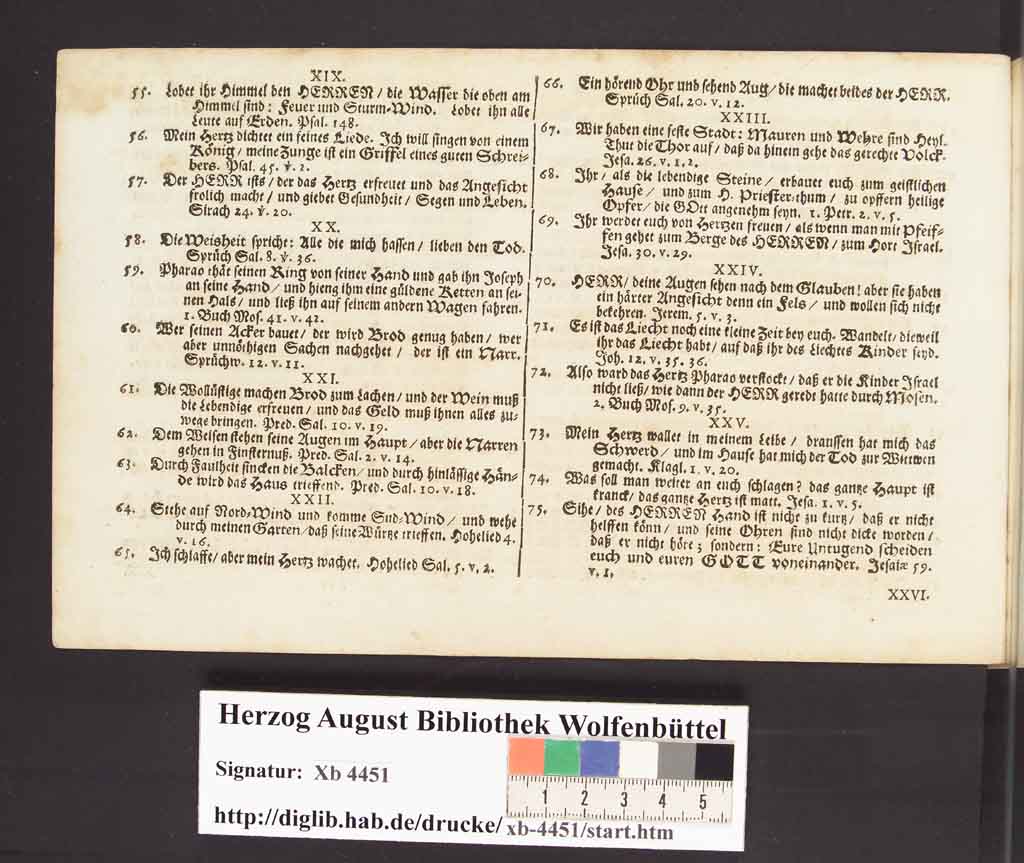 XIX.
55. Lobet ihr Himmel den HERREN / die Wasser die oben am
Himmel sind: Feuer und Sturm-Wind. Lobet ihn alle
Leute auf Erden. Psal. 148.
56. Mein Hertz dichtet ein feines Liede. Ich will singen von einem
König / meine Zunge ist ein Griffel eines guten Schrei-
bers. Psal. 45. v. 2.
57. Der HERR ists / der das Hertz erfreuet und das Angesicht
frolich macht / und giebet Gesundheit / Segen und Leben.
Sirach 24. v. 20.
XX.
58. Die Weisheit spricht: Alle die mich hassen / lieben den Tod.
Sprüch Sal. 8. v. 36.
59. Pharao thät seinen Ring von seiner Hand und gab ihn Joseph
an seine Hand / und hieng ihm eine güldene Ketten an sei-
nen Hals / und ließ ihn auf seinem andern Wagen fahren.
1. Buch Mos. 41. v. 42.
60. Wer seinen Acker bauet / der wird Brod genug haben / wer
aber unnöthigen Sachen nachgehet / der ist ein Narr.
Sprüchw. 12. v. 11.
XXI.
61. Die Wollüstige machen Brod zum Lachen / und der Wein muß
die Lebendige erfreuen / und das Geld muß ihnen alles zu-
wege bringen. Pred. Sal. 10. v. 19.
62. Dem Weisen stehen seine Augen im Haupt / aber die Narren
gehen in Finsternuß. Pred. Sal. 2. v. 14.
63. Durch Faulheit sincken die Balcken / und durch hinlässige Hän-
de wird das Haus trieffend. Pred. Sal. 10. v. 18.
XXII.
64. Stehe auf Nord-Wind und komme Sud-Wind / und wehe
durch meinen Garten / daß seine Würtze trieffen. Hohelied 4.
v. 16.
65. Ich schlaffe / aber mein Hertz wachet. Hohelied Sal. 5. v. 2.
66. Ein hörend Ohr und sehend Aug / die machet beides der HERR.
Sprüch Sal. 20. v. 12.
XXIII.
67. Wir haben eine feste Stadt: Mauren und Wehre sind Heyl.
Thut die Thor auf / daß da hinein gehe das gerechte Volck.
Jesa. 26. v. 1. 2.
68. Ihr / als die lebendige Steine / erbauet euch zum geistlichen
Hause / und zum H. Priesterthum / zu opffern heilige
Opfer / die GOtt angenehm seyn. 1. Petr. 2. v. 5.
69. Ihr werdet euch von Hertzen freuen / als wenn man mit Pfeif-
fen gehet zum Berge des HERREN / zum Hort Israel.
Jesa. 30. v. 29.
XXIV.
70. HERR / deine Augen sehen nach dem Glauben! aber sie haben
ein härter Angesicht denn ein Fels / und wollen sich nicht
bekehren. Jerem. 5. v. 3.
71. Es ist das Liecht noch eine kleine Zeit bey euch. Wandelt / dieweil
ihr das Liecht habt / auf daß ihr des Liechtes Kinder seyd.
Joh. 12. v. 35. 36.
72. Also ward das Hertz Pharao verstockt / daß er die Kinder Israel
nicht ließ / wie dann der HERR geredt hatte durch Mosen.
2. Buch Mos. 9. v. 35.
XXV.
73. Mein Hertz wallet in meinem Leibe / draussen hat mich das
Schwerd / und im Hause hat mich der Tod zur Wittwen
gemacht. Klagl. 1. v. 20.
74. Was soll man weiter an euch schlagen? das gantze Haupt ist
kranck / das gantze Hertz ist matt. Jesa. 1. v. 5.
75. Sihe / des HERREN Hand ist nicht zu kurtz / daß er nicht
helffen könn / und seine Ohren sind nicht dicke worden /
daß er nicht höre; sondern: Eure Untugend scheiden
euch und euren GOTT voneinander. Jesaiæ 59.
v. 1.
XXVI.
Herzog August Bibliothek Wolfenbüttel
Signatur: Xb 4451
1 2 3 4 5
http://diglib.hab.de/drucke/xb-4451/start.htm